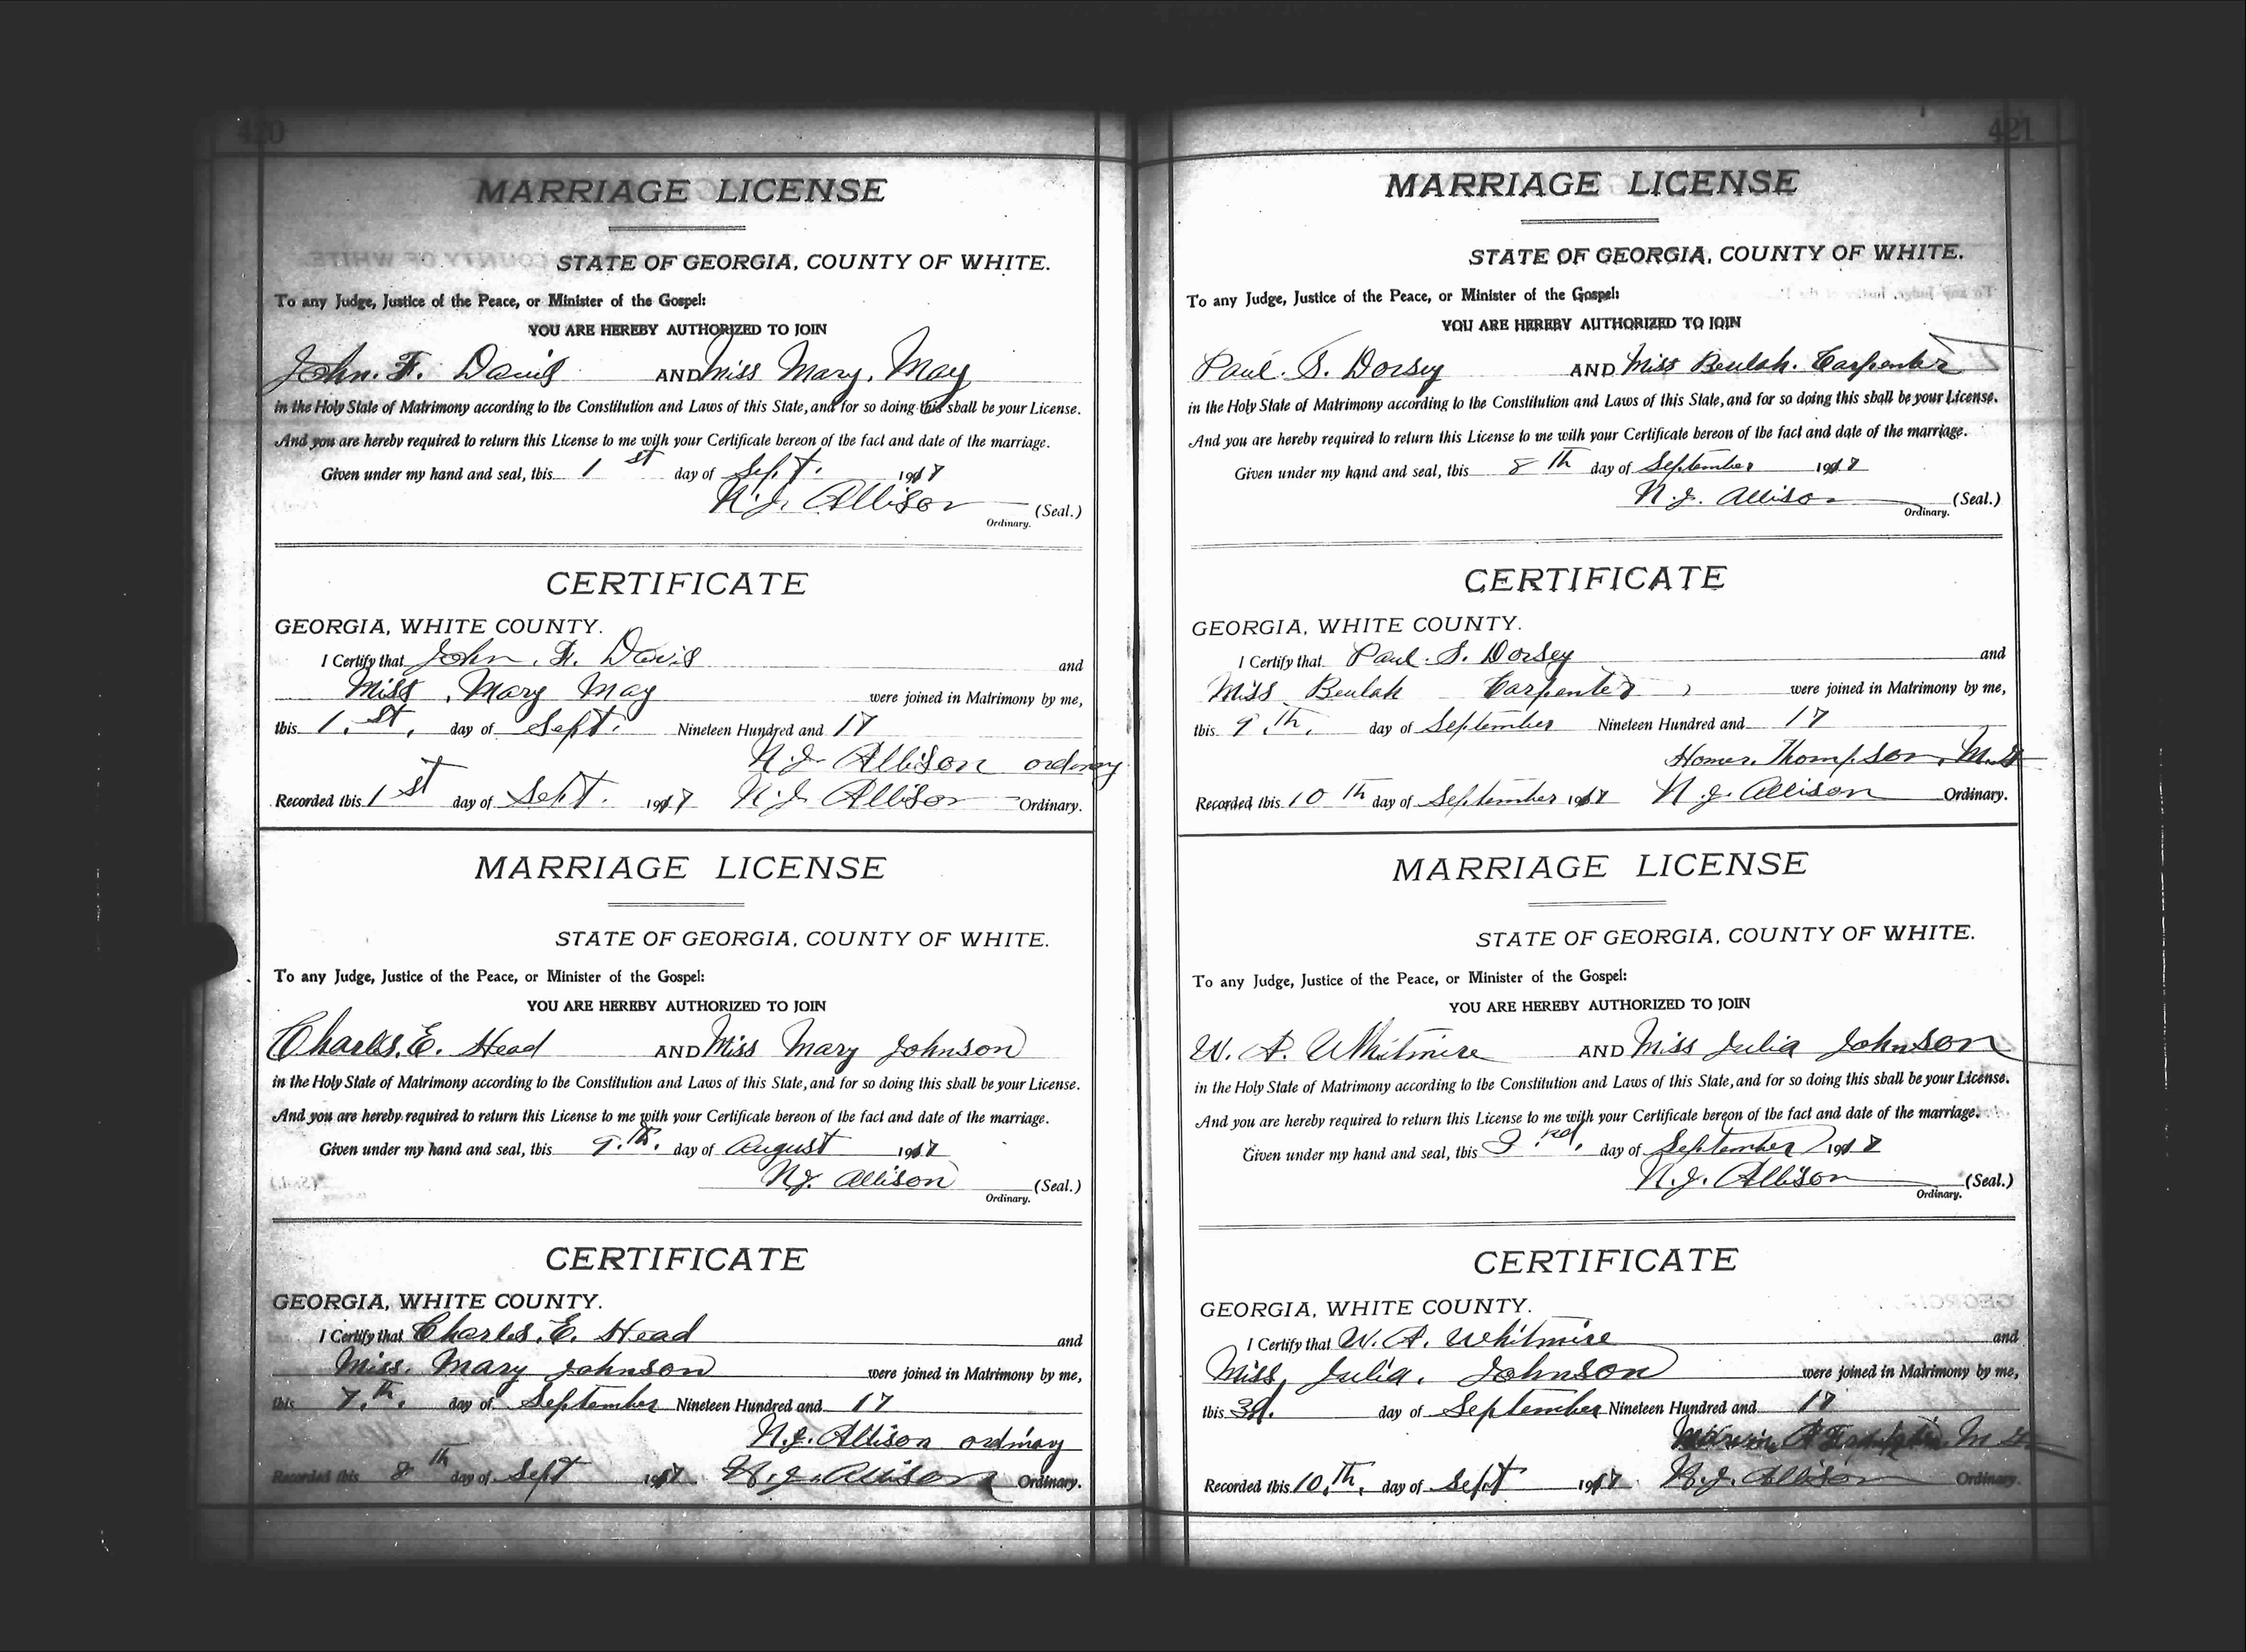 420
MARRIAGE LICENSE
STATE OF GEORGIA, COUNTY OF WHITE.
To any Judge, Justice of the Peace, or Minister of the Gospel:
YOU ARE HEREBY AUTHORIZED TO JOIN
John. F. Davis AND Miss Mary. May
in the Holy State of Matrimony according to the Constitution and Laws of this State, and for so doing this shall be your License.
And you are hereby required to return this License to me with your Certificate hereon of the fact and date of the marriage.
Given under my hand and seal, this 1st day of Sept. 1917
N. J. Allison (Seal.)
Ordinary.
CERTIFICATE
GEORGIA, WHITE COUNTY.
I Certify that John. F. Davis and
Miss. Mary May were joined in Matrimony by me,
this 1.st. day of Sept. Nineteen Hundred and 17
N. J. Allison ordinary
Recorded this 1st day of Sept. 1917 N. J. Allison Ordinary.
MARRIAGE LICENSE
STATE OF GEORGIA, COUNTY OF WHITE.
To any Judge, Justice of the Peace, or Minister of the Gospel:
YOU ARE HEREBY AUTHORIZED TO JOIN
Charles. E. Head AND Miss Mary Johnson
in the Holy State of Matrimony according to the Constitution and Laws of this State, and for so doing this shall be your License.
And you are hereby required to return this License to me with your Certificate hereon of the fact and date of the marriage.
Given under my hand and seal, this 9.th. day of August 1917
N. J. Allison (Seal.)
Ordinary.
CERTIFICATE
GEORGIA, WHITE COUNTY.
I Certify that Charles. E. Head and
Miss. Mary Johnson were joined in Matrimony by me,
this 7.th. day of September Nineteen Hundred and 17
N. J. Allison ordinary
Recorded this 8th day of Sept 1917 N. J. Allison Ordinary.
421
MARRIAGE LICENSE
STATE OF GEORGIA, COUNTY OF WHITE.
To any Judge, Justice of the Peace, or Minister of the Gospel:
YOU ARE HEREBY AUTHORIZED TO JOIN
Paul. S. Dorsey AND Miss Beulah. Carpenter
in the Holy State of Matrimony according to the Constitution and Laws of this State, and for so doing this shall be your License.
And you are hereby required to return this License to me with your Certificate hereon of the fact and date of the marriage.
Given under my hand and seal, this 8th day of September 1917
N. J. Allison (Seal.)
Ordinary.
CERTIFICATE
GEORGIA, WHITE COUNTY.
I Certify that Paul. S. Dorsey and
Miss Beulah Carpenter were joined in Matrimony by me,
this 9.th. day of September Nineteen Hundred and 17
Homer. Thompson, M.G
Recorded this 10th day of September 1917 N. J. Allison Ordinary.
MARRIAGE LICENSE
STATE OF GEORGIA, COUNTY OF WHITE.
To any Judge, Justice of the Peace, or Minister of the Gospel:
YOU ARE HEREBY AUTHORIZED TO JOIN
W. A. Whitmire AND Miss Julia Johnson
in the Holy State of Matrimony according to the Constitution and Laws of this State, and for so doing this shall be your License.
And you are hereby required to return this License to me with your Certificate hereon of the fact and date of the marriage.
Given under my hand and seal, this 3rd. day of September 1917
N. J. Allison (Seal.)
Ordinary.
CERTIFICATE
GEORGIA, WHITE COUNTY.
I Certify that W. A. Whitmire and
Miss, Julia. Johnson were joined in Matrimony by me,
this 3d. day of September Nineteen Hundred and 17
M G
Recorded this 10.th. day of Sept 1917 N. J. Allison Ordinary.